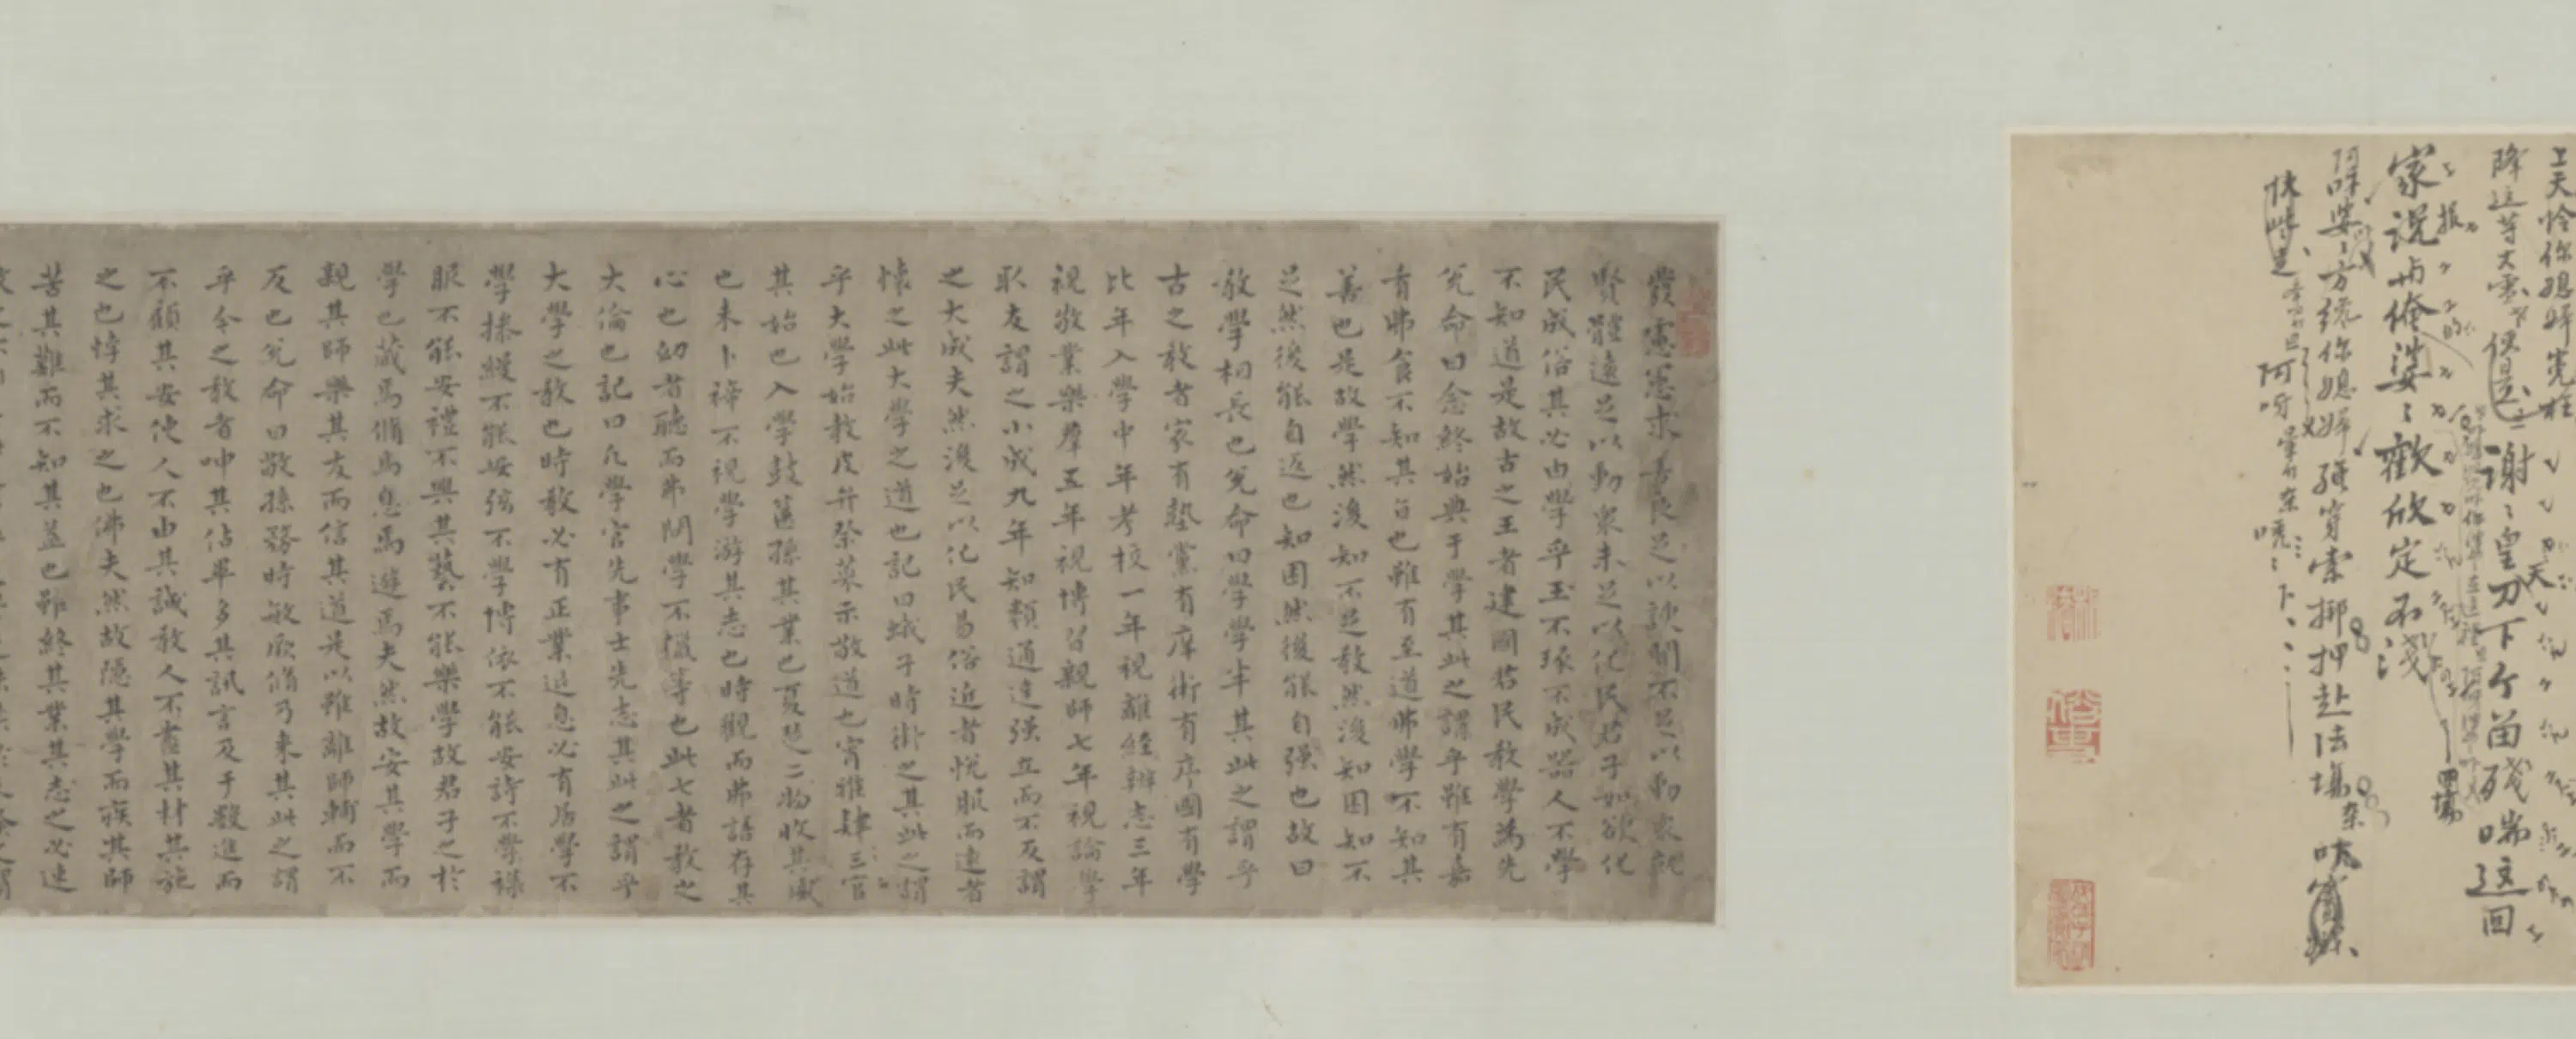 上天怜你媳婦
降这等大雪 但是 谢:皇天刀下个留残喘这回
家说与俺婆:歡欣定不浅
婆:方纔你媳婦 穿索挷押赴法場
快
發慮憲求善良足以謏聞不足以動衆就
賢體遠足以動衆未足以化民君子如欲化
民成俗其必由學乎玉不琢不成器人不學
不知道是故古之王者建國君民教學為先
兊命曰念終始典于學其此之謂乎雖有嘉
肴弗食不知其旨也雖有至道弗學不知其
善也是故學然後知不足教然後知困知不
足然後能自返也知困然後能自强也故曰
教學相長也兊命曰學學半其此之謂乎
古之教者家有塾黨有庠術有序國有學
比年入學中年考校一年視離經辨志三年
視敬業樂羣五年視博習親師七年視論學
取友謂之小成九年知類通達强立而不反謂
之大成夫然後足以化民易俗近者悅服而遠者
懷之此大學之道也記曰蛾子時術之其此之謂
乎大學始教皮弁祭菜示敬道也宵雅肄三官
其始也入學鼓篋孫其業也夏楚二物收其威
也未卜禘不視學游其志也時觀而弗語存其
心也幼者聽而弗問學不躐等也此七者教之
大倫也記曰凡學官先事士先志其此之謂乎
大學之教也時教必有正業退息必有居學不
學操縵不能安弦不學博依不能安詩不學襍
服不能安禮不興其藝不能樂學故君子之於
學也藏焉脩焉息焉遊焉夫然故安其學而
親其師樂其友而信其道是以雖離師輔而不
反也兊命曰敬孫務時敏厥脩乃来其此之謂
乎今之教者呻其佔畢多其訊言及于數進而
不顧其安使人不由其誠教人不盡其材其施
之也悖其求之也佛夫然故隱其學而疾其師
苦其難而不知其益也雖終其業其去之必速